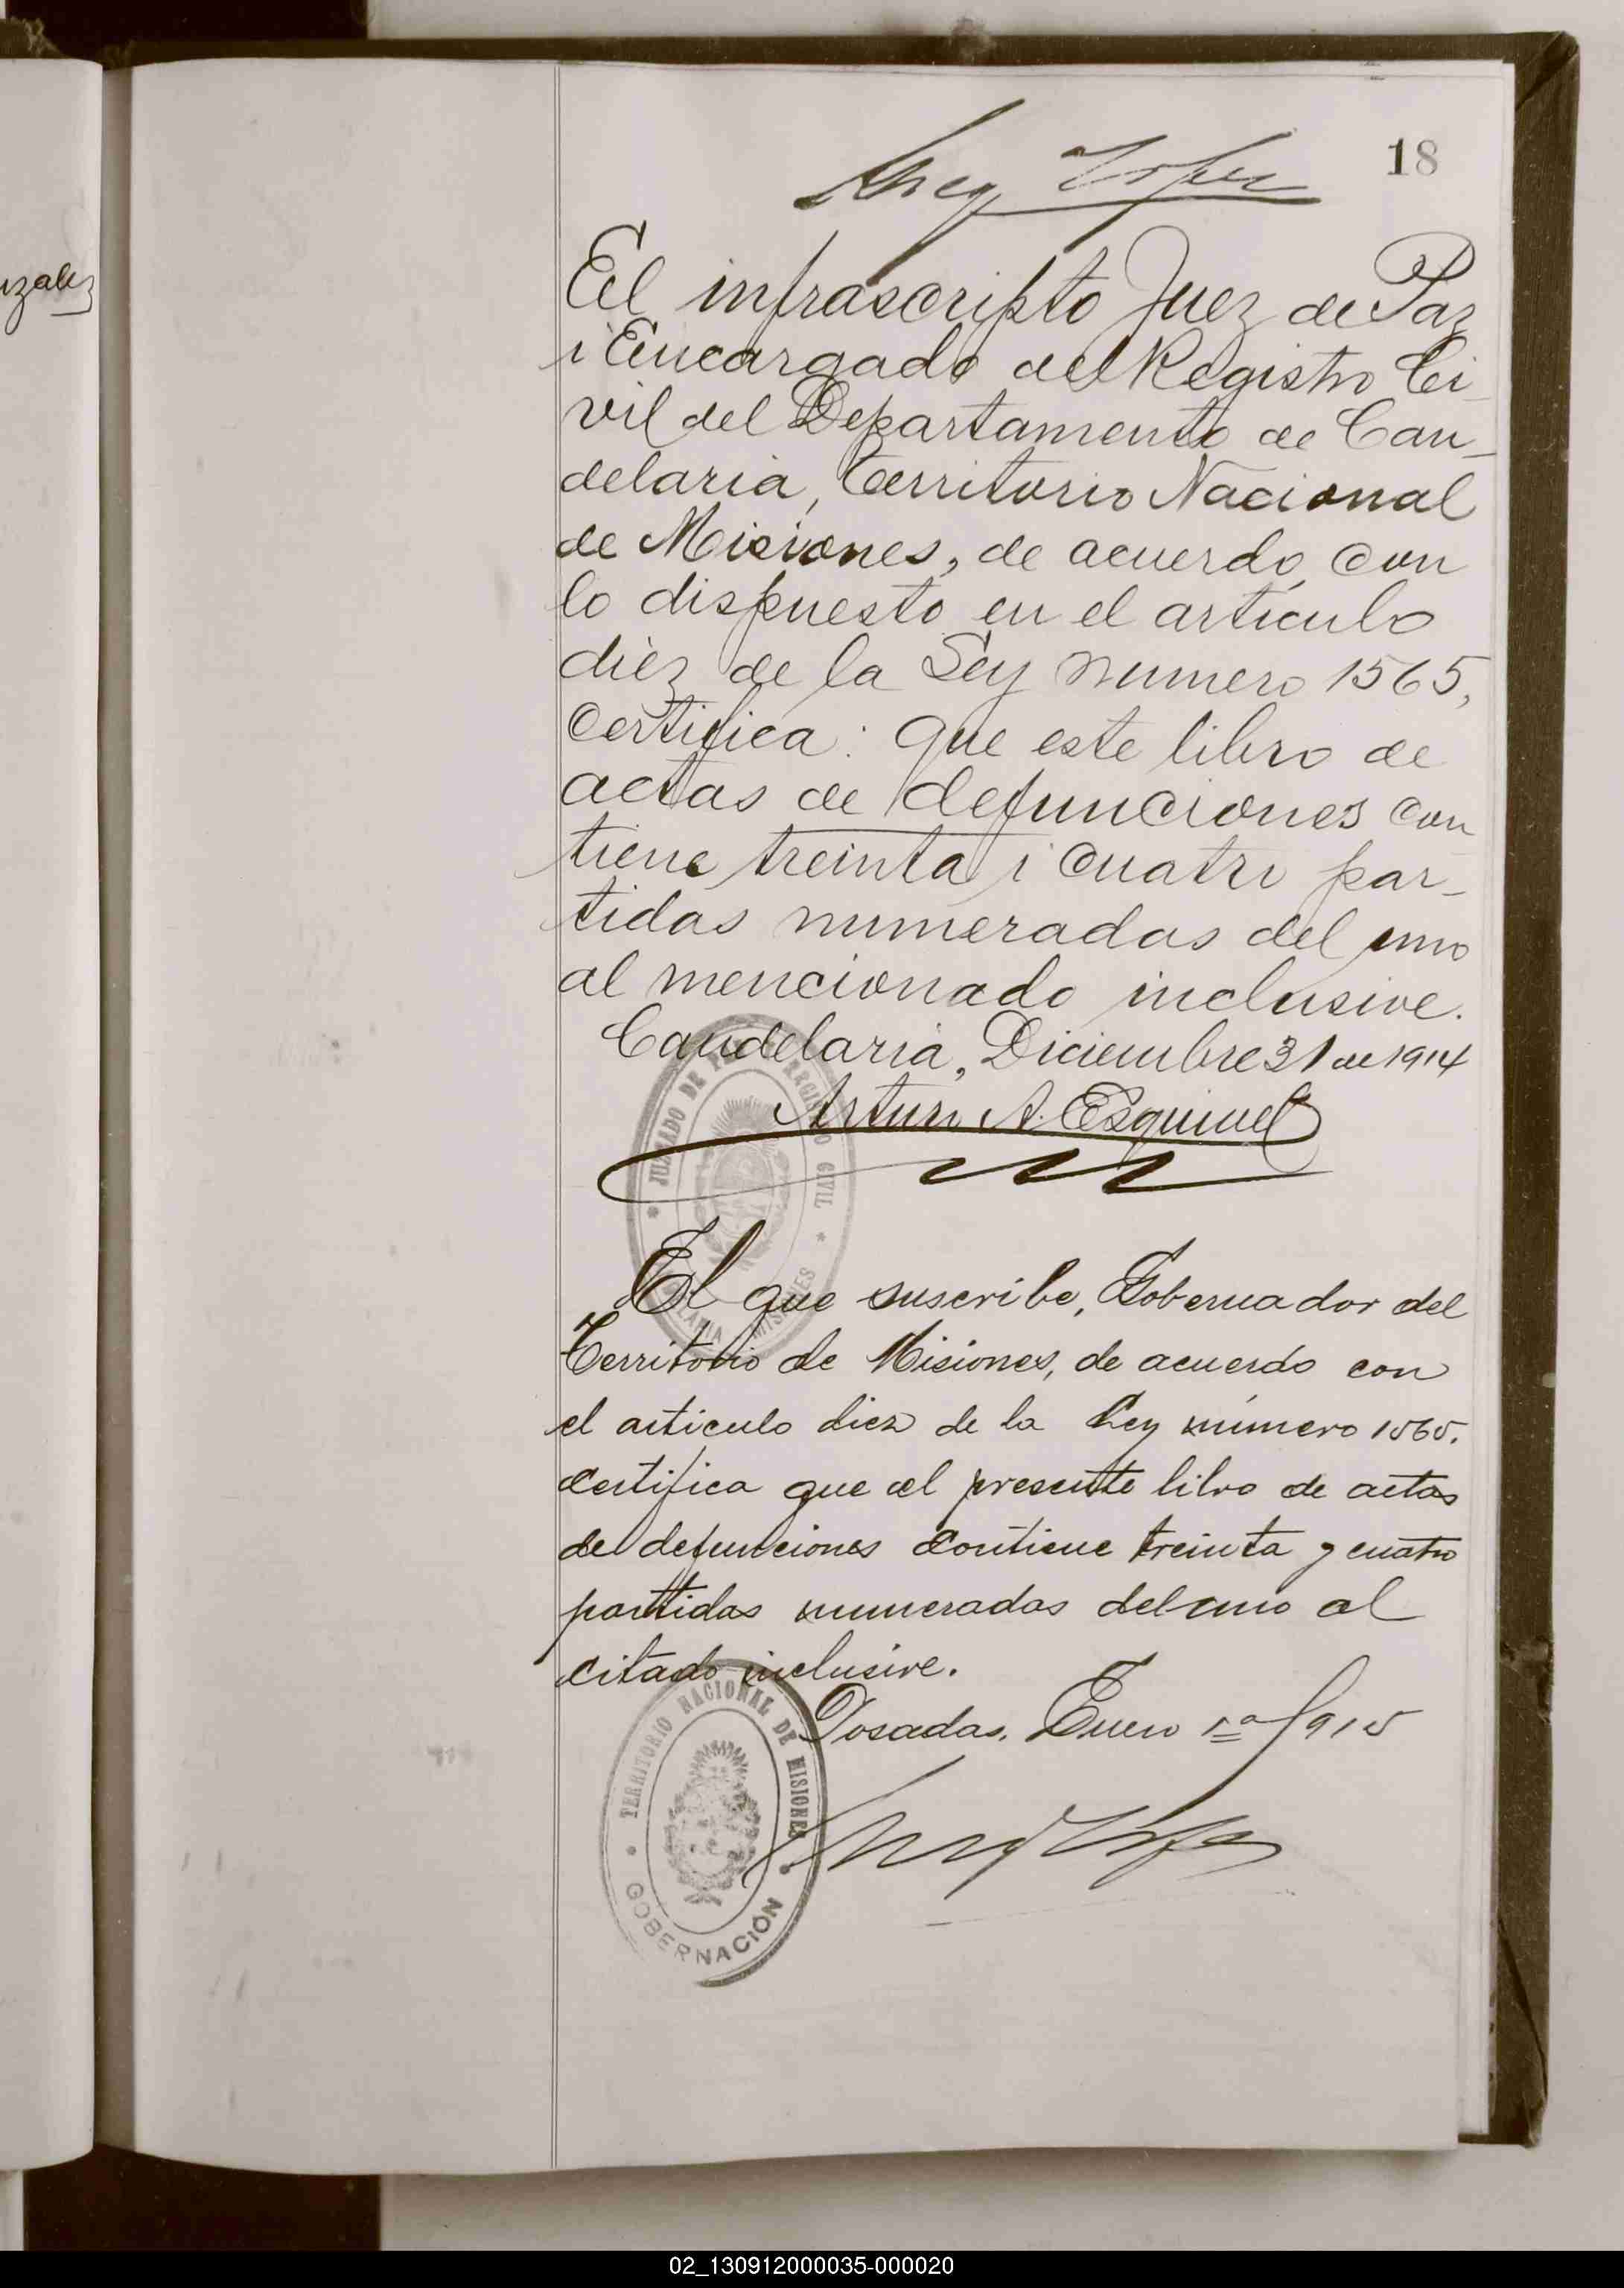 18
nzalez
El infrascripto Juez de Paz
i Encargado del Registro Ci
vil del Departamento de Can
delaria, Territorio Nacional
de Misiones, de acuerdo con
lo dispuesto en el artículo
diez de la Ley numero 1565,
Certifica: que este libro de
actas de defunciones con
tiene treinta i cuatro par-
tidas numeradas del uno
al mencionado inclusive.
Candelaria, Diciembre 31 de 1914
Arturo A. Esquivel
JUZGADO DE PAZ REGISTRO CIVIL
CANDELARIA MISIONES
El que suscribe, Gobernador del
Territorio de Misiones, de acuerdo con
el articulo diez de la Ley número 1565.
certifica que el presente libro de actas
de defunciones contiene treinta y cuatro
partidas numeradas del uno al
citado inclusive.
Posadas, Enero 1º 1915
TERRITORIO NACIONAL DE MISIONES
GOBERNACIÓN
02_130912000035-000020